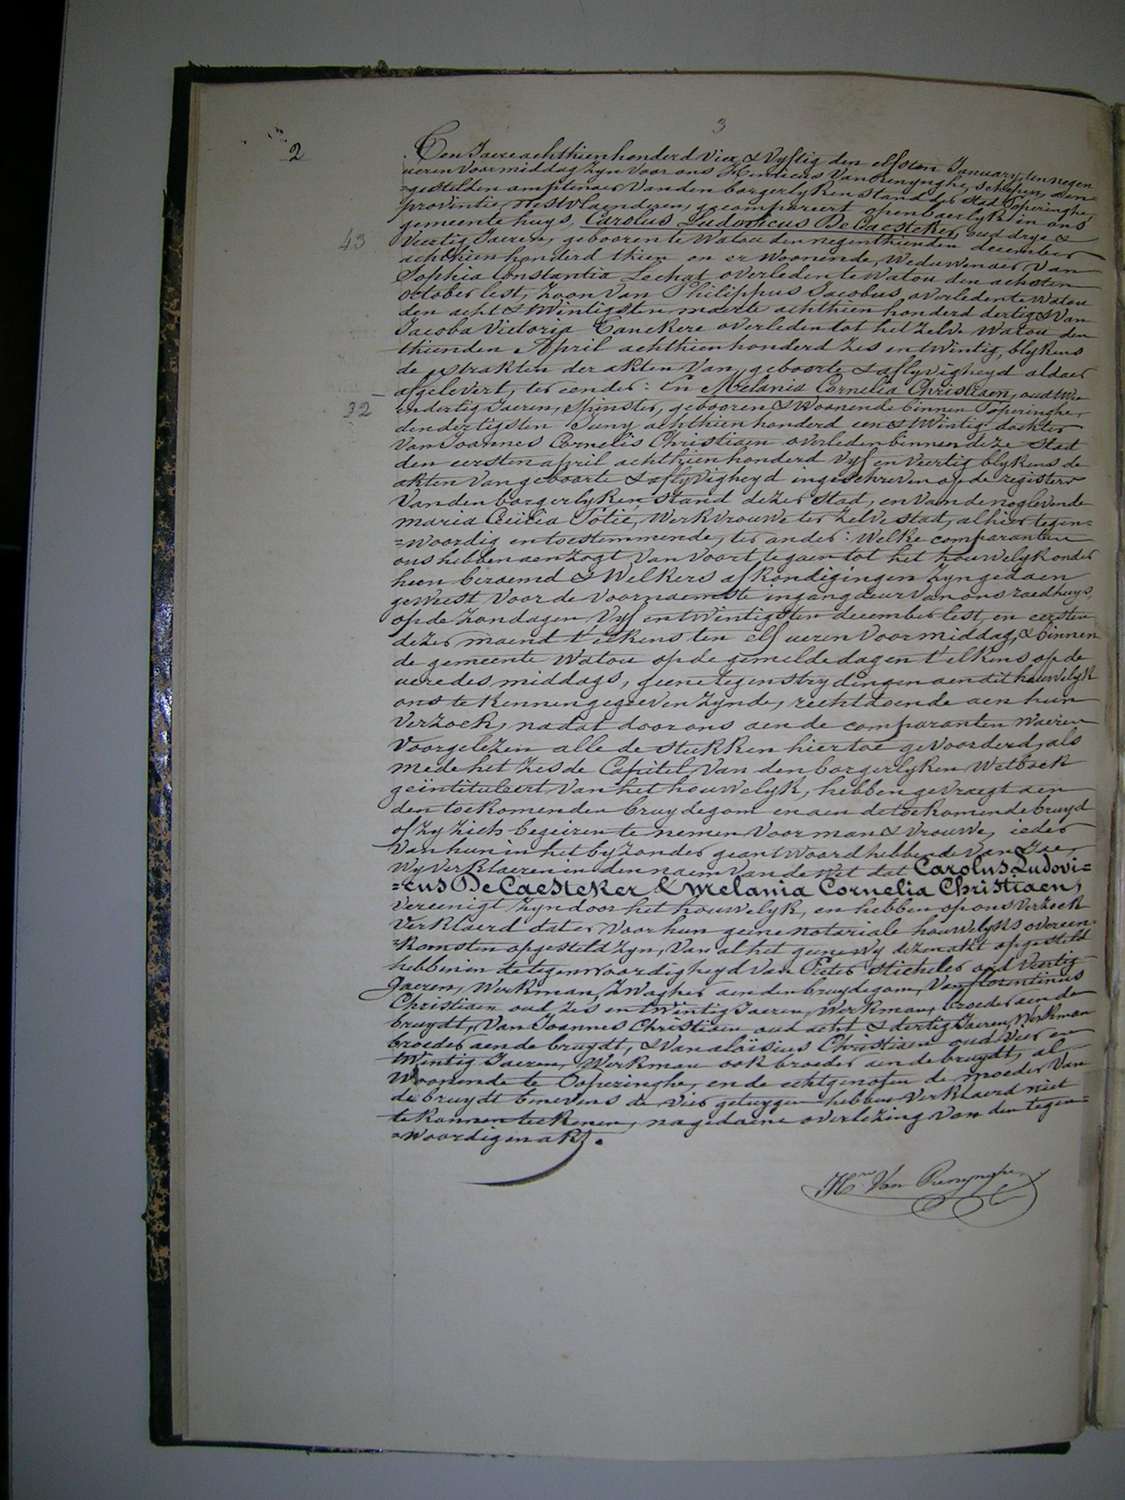 3
2
Den Jaere achthien honderd vier & vyftig den elfsten January, ten negen
ueren voormiddag zyn voor ons Henricus Van Renynghe, Schepen, aen-
=gestelden amptenaer van den borgerlyken stand der stad Poperinghe,
provintie Westvlaenderen, gecompareert openbaerlyk in ons
gemeente huys, Carolus Ludovicus De Caesteker, oud drye &
43
veertig Jaeren, gebooren te Watou den negenthienden december
achthien honderd thien en er woonende, Weduwenaer van
Sophia Constantia Lechat overleden te Watou den achsten
october lest, zoon van Philippus Jacobus, overleden te Watou
den acht & twintigsten maerte achthien honderd dertig & van
Jacoba Victoria Canckere overleden tot het zelve Watou den
thienden April achthien honderd zes en twintig, blykens
de extrakten der akten van geboorte & aflyvigheyd aldaer
afgelevert, ter eender: En Melania Cornelia Christiaen, oud twe
32
endertig Jaeren, Spinster, gebooren & woonende binnen Poperinghe,
den dertigsten Juny achthien honderd een & twintig dochter
van Joannes Cornelis Christiaen overleden binnen deze Stad
den eersten april achthien honderd vyf en veertig blykens de
akten van geboorte & aflyvigheyd ingeschreven op de registers
van den borgerlyken stand dezer stad, en van de nog levende
maria Cecilia Potié, Werkvrouwe ter zelve stad, alhier tegen=
=woordig en toestemmende, ter ander: Welke comparanten
ons hebben aenzogt van voort te gaen tot het houwelyk onder
hen beraemd & Welkers afkondigingen zyn gedaen
geweest voor de voornaemste ingangdeur van ons raedhuys,
op de zondagen vyf en twintigsten december lest, en eersten
dezer maend t'elkens ten elf ueren voormiddag, & binnen
de gemeente Watou op de gemelde dagen t'elkens op de
uere des middags, geene tegenstrydingen aen dit houwelyk
ons te kennen gegeeven zynde, rechtdoende aen hun
verzoek, nadat door ons aen de comparanten waeren
voorgelezen alle de stukken hiertoe gevoorderd, als
mede het zesde Capitel van den borgerlyken Wetboek
geïntituleert van het houwelyk, hebben gevraegt aen
den toekomenden bruydegom en aen de toekomende bruyd
of zy zich begeiren te nemen voor man & vrouwe, ieder
van hun in het byzonder geantwoord hebbende van Jae,
Wy verklaeren in den naem van de wet dat Carolus Ludovi=
=cus De Caesteker & Melania Cornelia Christiaen,
vereenigt zyn door het houwelyk, en hebben op ons verzoek
verklaerd dat er voor hun geene notariale houwelyks overeen-
=komsten opgesteld zyn, van al het geene wy dezen akt opgesteld
hebben in de tegenwoordigheyd van Pieter Sticheler oud veertig
Jaeren, Werkman, zwager aen den bruydegom, van florentinus
Christiaen oud zes en twintig Jaeren, Werkman, broeder aen de
bruydt, van Joannes Christiaen oud acht & dertig Jaeren, Werkman
broeder aen de bruydt, & van aloïsius Christiaen oud vier en
twintig Jaeren, Werkman ook broeder aen de bruydt, al
woonende te Poperinghe, en de echtgenoten de moeder van
de bruydt benevens de vier getuygen hebben verklaerd niet
te konnen teekenen, na gedaene overlezing van den tegen=
=woordigen akt.
Hen Van Renynghe